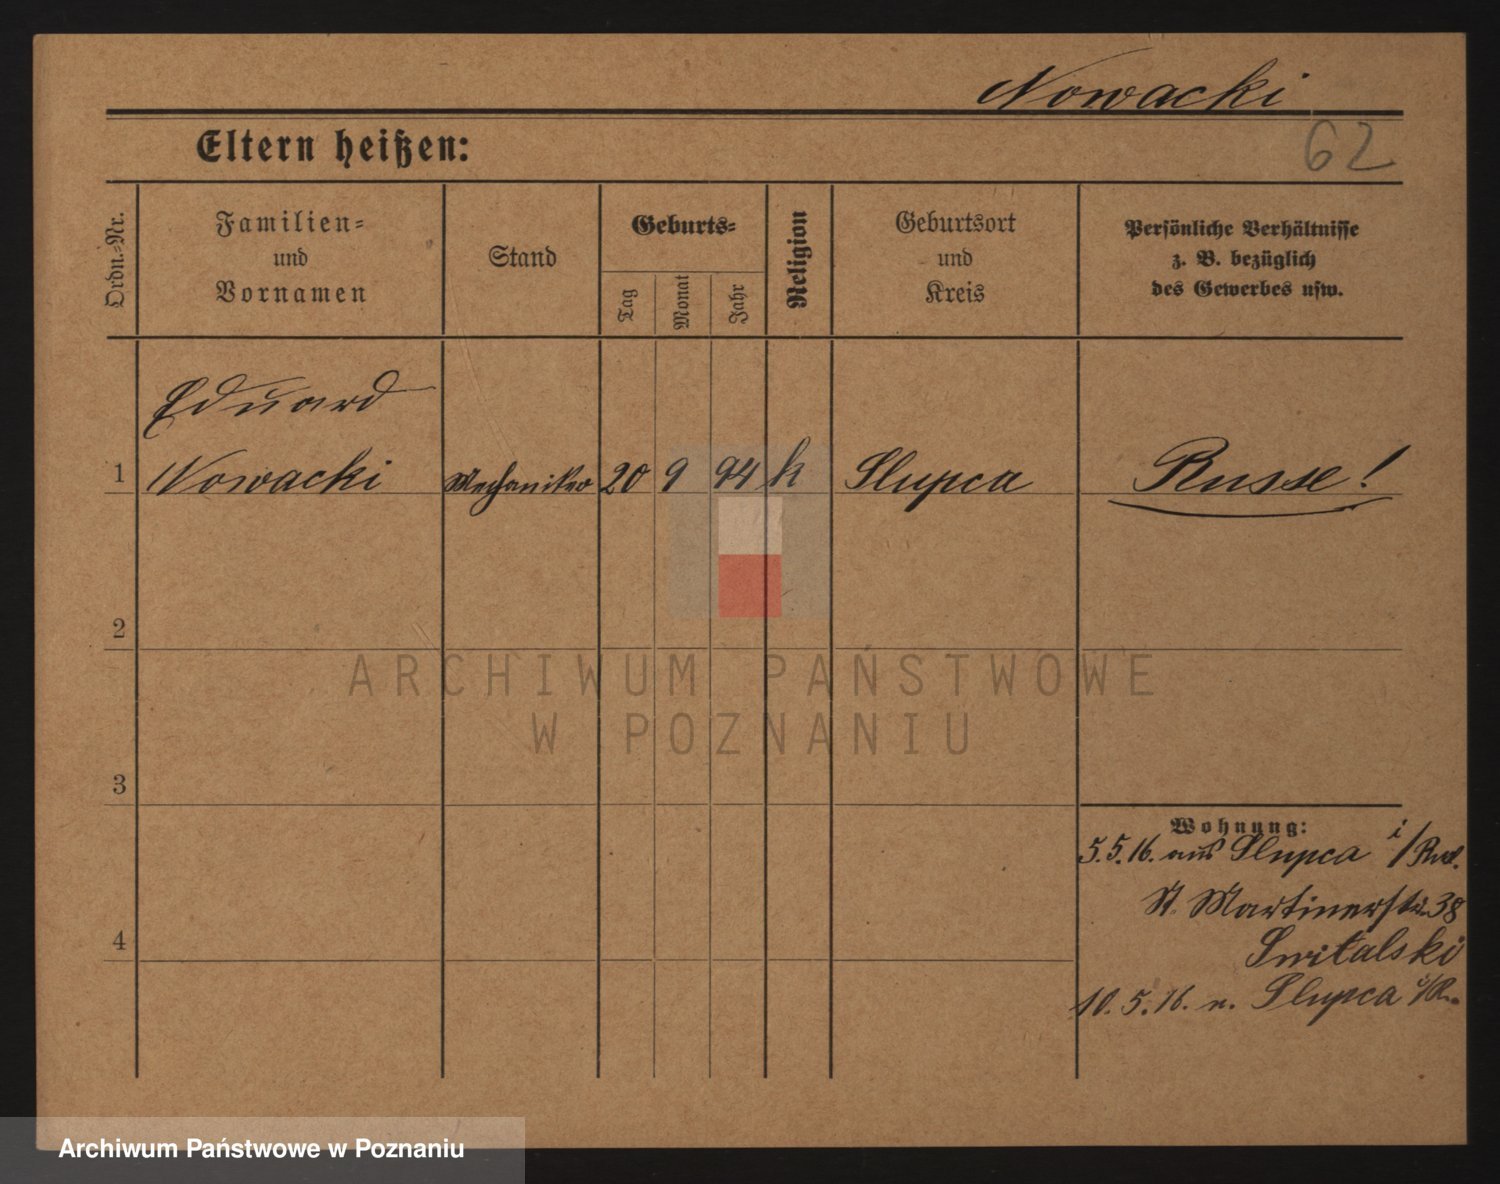 Nowacki
62
Eltern heißen:
Ordn.=Nr.
Familien=
und
Vornamen
Stand
Geburts=
Tag
Monat
Jahr
Religion
Geburtsort
und
Kreis
Persönliche Verhältnisse
z. B. bezüglich
des Gewerbes usw.
Eduard
1 Nowacki Mechaniker 20 9 94 k Slupca Russe!
2
ARCHIWUM PAŃSTWOWE
W POZNANIU
3
Wohnung:
5.5.16. aus Slupca i/Rus.
St. Martinerstr. 38
4
Switalski
10.5.16. n. Slupca i/R.
Archiwum Państwowe w Poznaniu